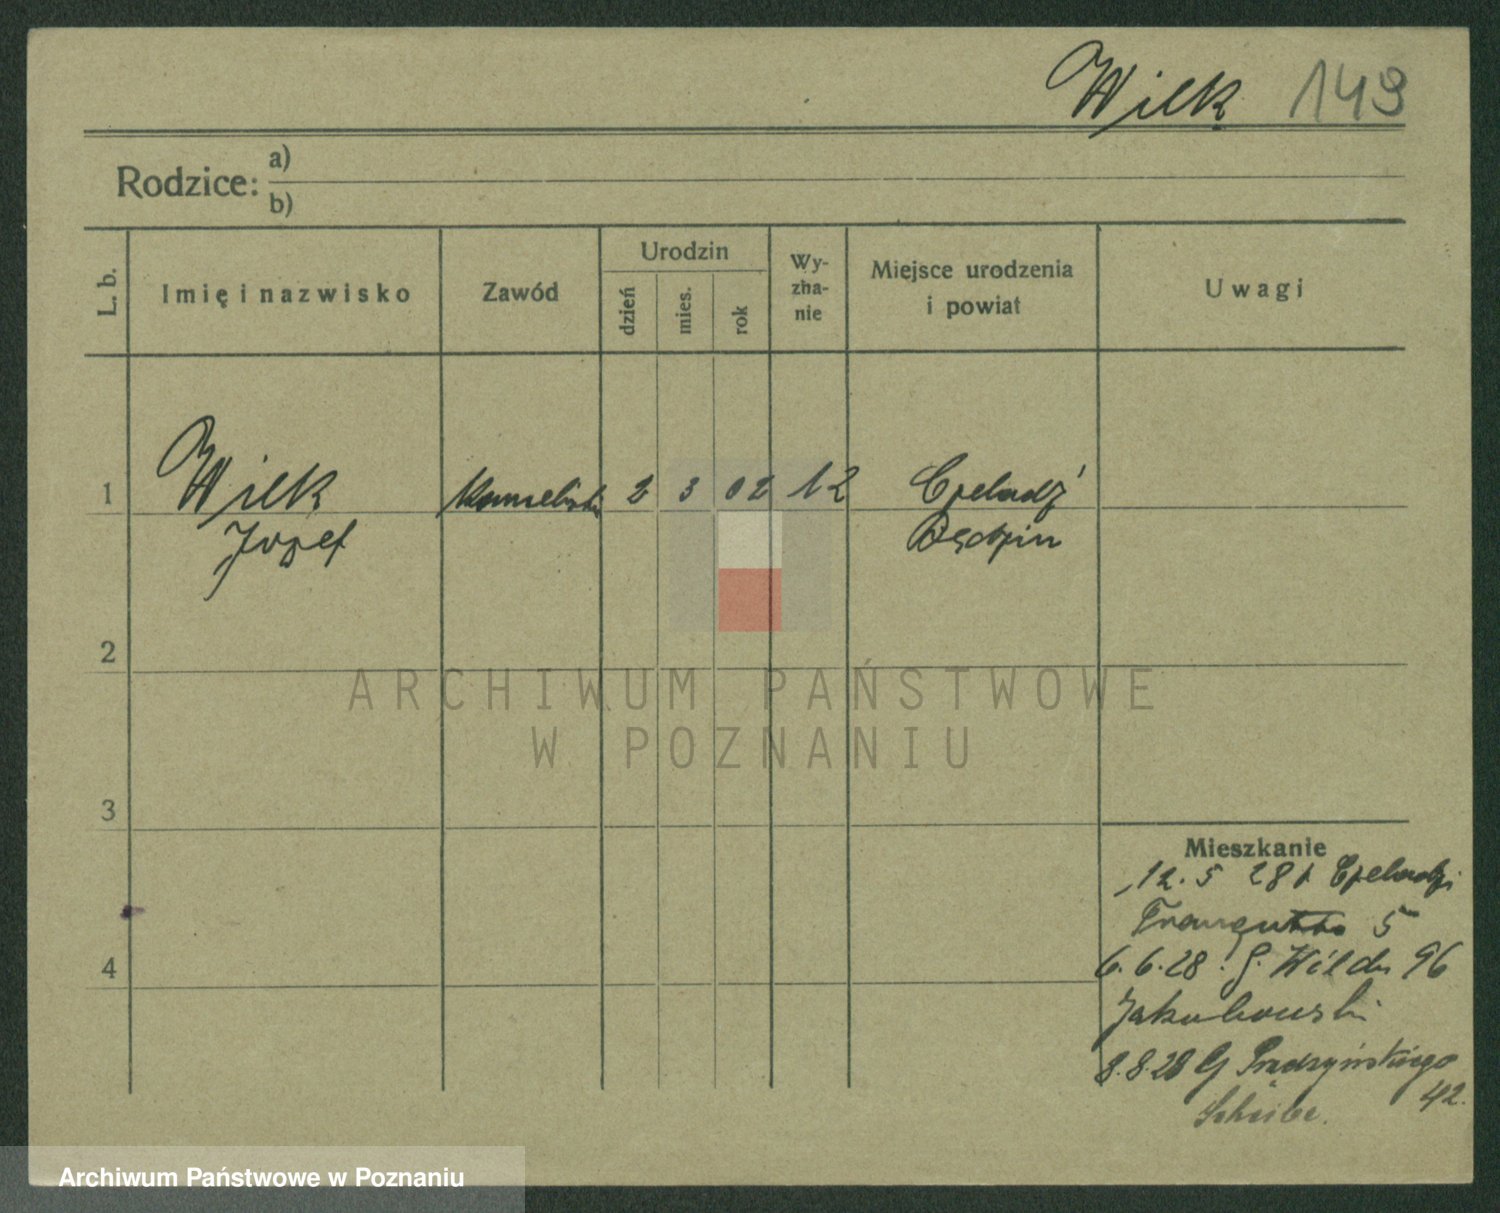 Wilk 149
Rodzice: a)
b)
L. b. Imię i nazwisko Zawód Urodzin dzień mies. rok Wy-zna-nie Miejsce urodzenia i powiat Uwagi
1 Wilk 2 3 02 12 Czeladź
Józef Będzin
2
ARCHIWUM PAŃSTWOWE
W POZNANIU
3
Mieszkanie
12.5 28 Czeladzi
Traugutta 5
4
6.6.28 G. Wilda 96
Jakubowski
8.8.28 G Prądzyńskiego
42.
Scheibe.
Archiwum Państwowe w Poznaniu